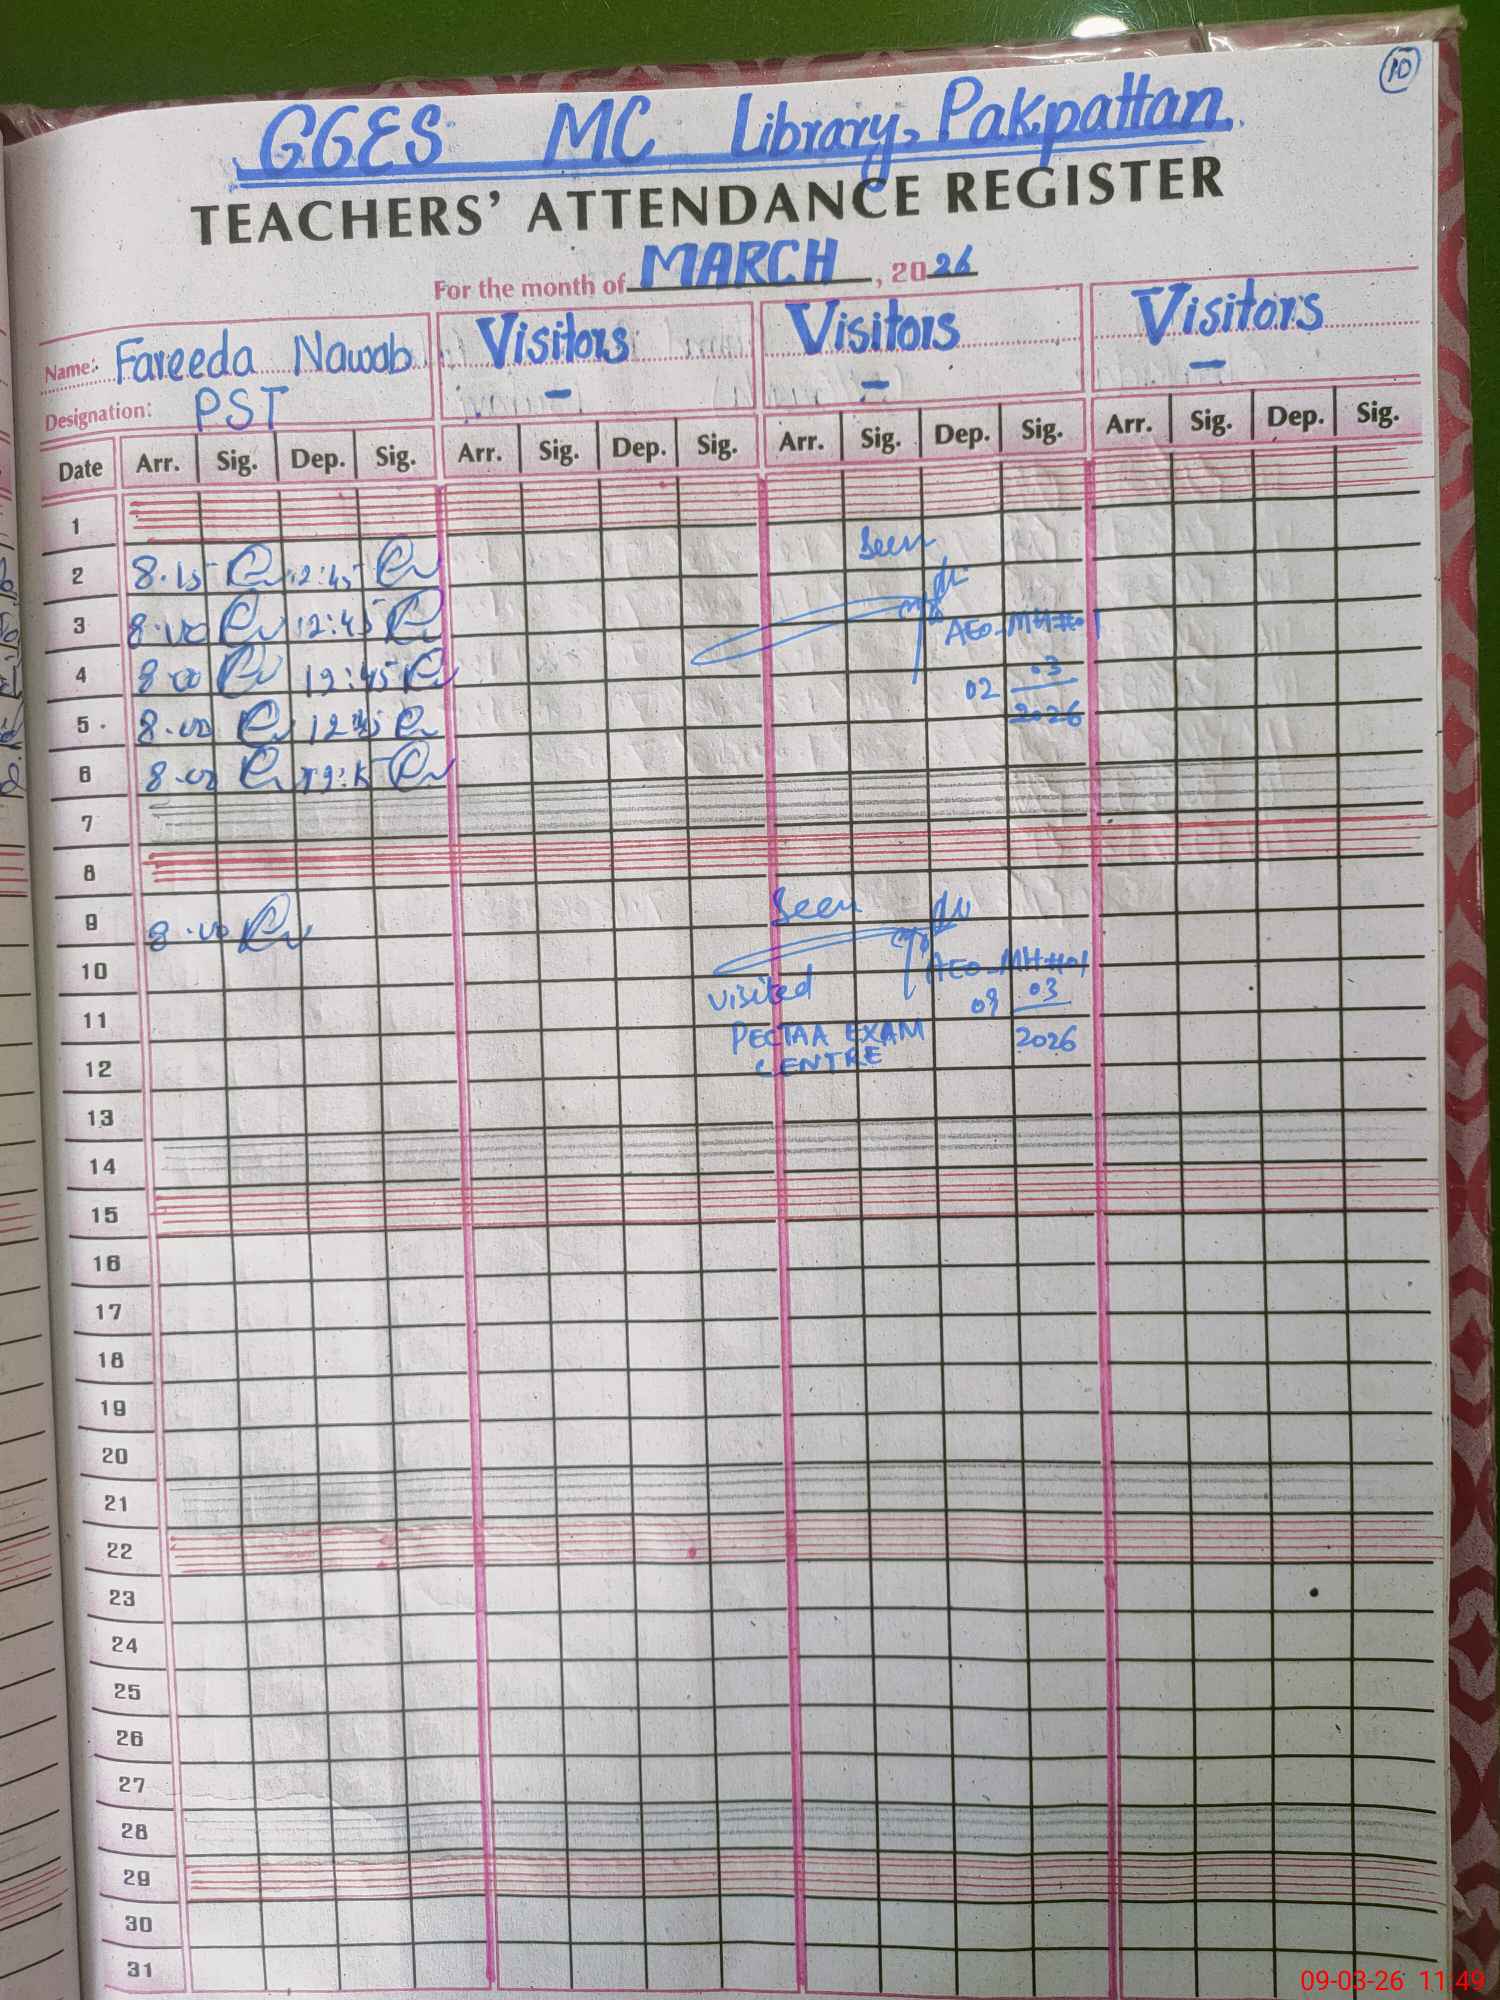 10
GGES MC Library, Pakpattan.
TEACHERS' ATTENDANCE REGISTER
For the month of MARCH, 2026
Name: Fareeda Nawab Visitors Visitors Visitors
Designation: PST - - -
Date Arr. Sig. Dep. Sig. Arr. Sig. Dep. Sig. Arr. Sig. Dep. Sig. Arr. Sig. Dep. Sig.
1
2 8.15 12:45 Seen
3 8.00 12:45 AEO-MH#01
4 8.00 12:45 02 03
5 8.00 12:45 2026
6 8.00
7
8
9 8.00 Seen
10 AEO-MH#01
11 visited 09 03
PECTAA EXAM 2026
12 CENTRE
13
14
15
16
17
18
19
20
21
22
23
24
25
26
27
28
29
30
31
09-03-26 11:49